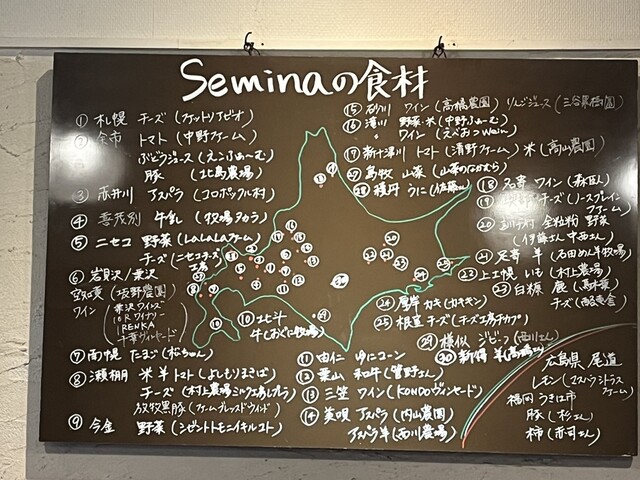 Seminaの食材
① 札幌 チーズ (ファットリアビオ)
② 余市 トマト (中野ファーム)
ぶどうジュース (えこふぁーむ)
豚 (北島農場)
③ 赤井川 アスパラ (コロポックル村)
④ 喜茂別 牛乳 (牧場タカラ)
⑤ ニセコ 野菜 (LaLaLaファーム)
チーズ (ニセコチーズ工房)
⑥ 岩見沢/栗沢
(坂野農園)
ワイン 栗沢ワインズ
10Rワイナリー
RENKA
千葉ヴィンヤード
⑦ 南幌 たまご (松ちゃん)
⑧ 瀬棚 米 羊 トマト (よしもりまきば)
チーズ (村上農場ミルク工房レプレラ)
放牧黒豚 (ファームブレッスドウインド)
⑨ 今金 野菜 (シゼントトモニイキルコト)
⑩ 北斗
牛 (おぐに牧場)
⑪ 由仁 ゆにコーン
⑫ 栗山 和牛 (菅野さん)
⑬ 三笠 ワイン (KONDOヴィンヤード)
⑭ 美唄 アスパラ (内山農園)
アスパラ羊 (西川農場)
⑮ 砂川 ワイン (高橋農園) りんごジュース (三谷果樹園)
⑯ 滝川 野菜・米 (中野ふぁーむ)
〃 ワイン (えべおつWein)
⑰ 新十津川 トマト (清野ファーム) 米 (高山農園)
㉗ 島牧 山菜 (山菜のなかむら)
㉘ 積丹 うに (佐藤さん)
⑱ 名寄 ワイン (森臥)
⑲ チーズ (ノースプレインファーム)
⑳ 訓子府 全粒粉 野菜
(伊藤さん 中西さん)
㉑ 足寄 羊 (石田めん羊牧場)
㉒ 上士幌 いも (村上農場)
㉓ 白糠 鹿 (馬木葉)
チーズ (酪恵舎)
㉔ 厚岸 カキ (カキキン)
㉕ 根室 チーズ (チーズ工房チカプ)
㉙ 様似 ジビーフ (西川さん)
㉚ 新得 羊
広島県 尾道
レモン (マスハラシトラスファーム)
福岡 うきは市
豚 (杉さん)
柿 (赤司さん)